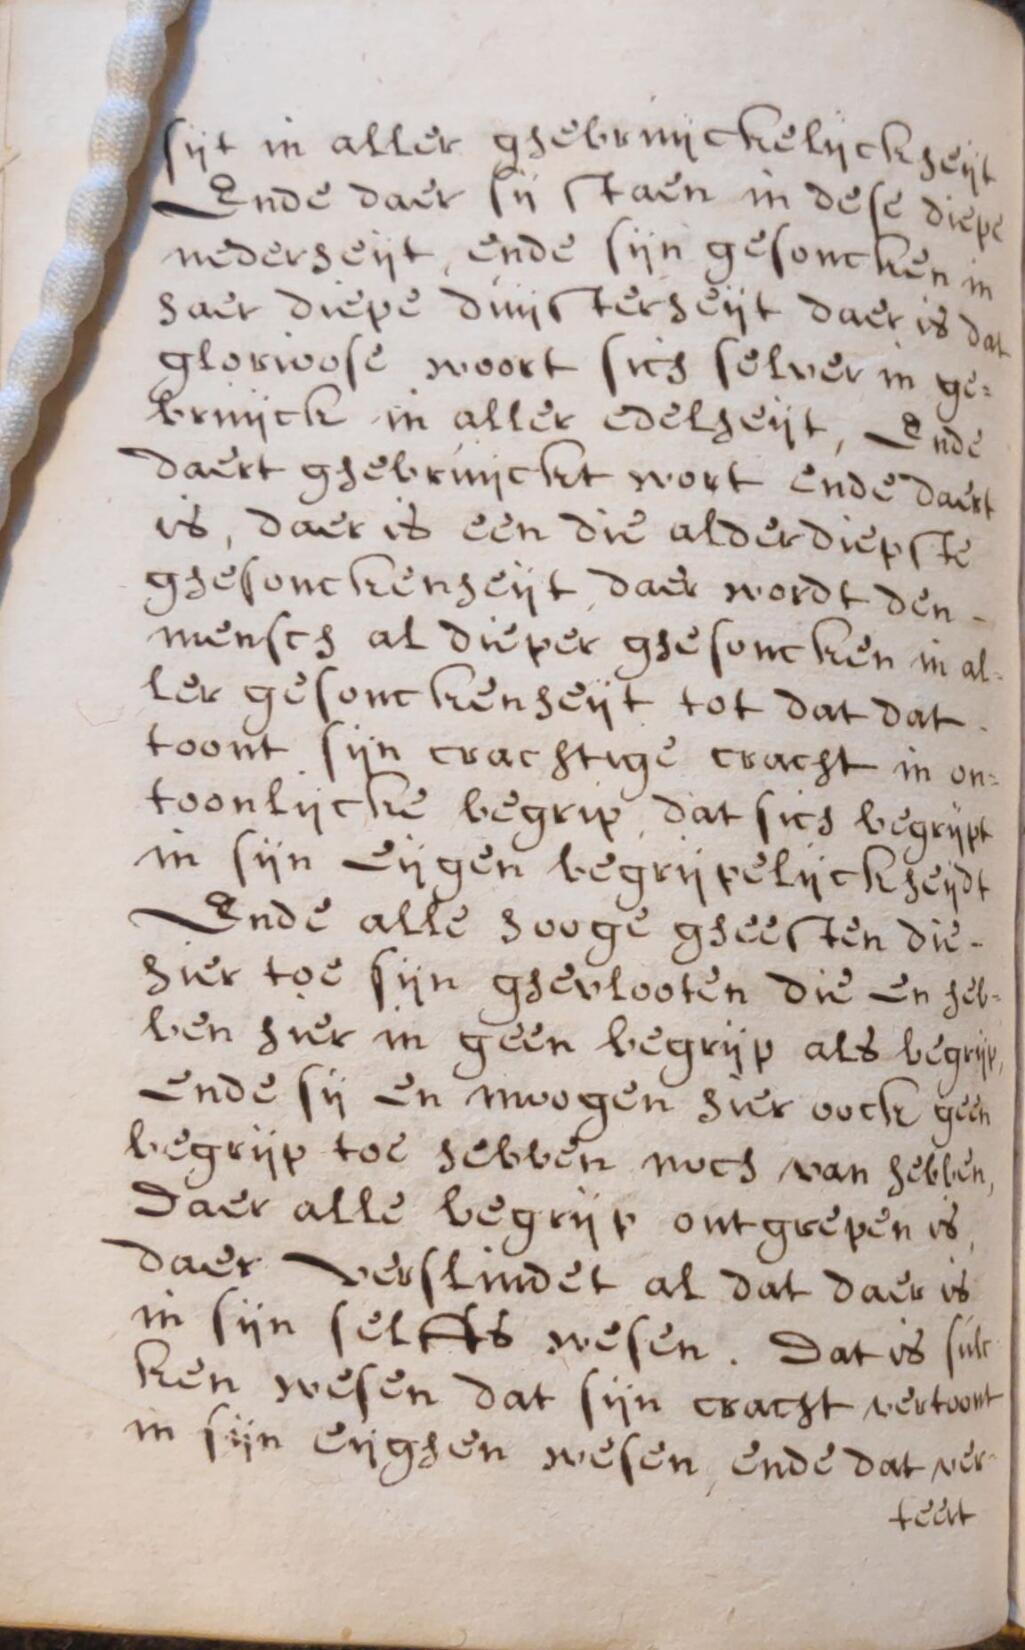 sijt in aller ghebruijckelijckheijt
Ende daer sij staen in dese diepe
nederheijt, ende sijn gesoncken in
haer diepe duijsterheijt daer is dat
glorioose woort sich selver in ge=
bruijck in aller edelheijt, Ende
daert ghebruijckt wort ende daert
is, daer is een die alderdiepste
ghesonckenheijt, daer wordt den -
mensch al dieper ghesoncken in al=
ler gesonckenheijt tot dat dat -
toont sijn crachtige cracht in on=
toonlijcke begrip, dat sich begrijpt
in sijn eijgen begrijpelijckheijdt
Ende alle hooge gheesten die -
hier toe sijn ghevlooten die en heb=
ben hier in geen begrijp als begrijp,
ende sij en moogen hier oock geen
begrijp toe hebben noch van hebben,
Daer alle begrijp ontgrepen is,
daer verslindet al dat daer is
in sijn selffs wesen. Dat is sulc
ken wesen dat sijn cracht vertoont
in sijn eijghen wesen, ende dat ver-
teert